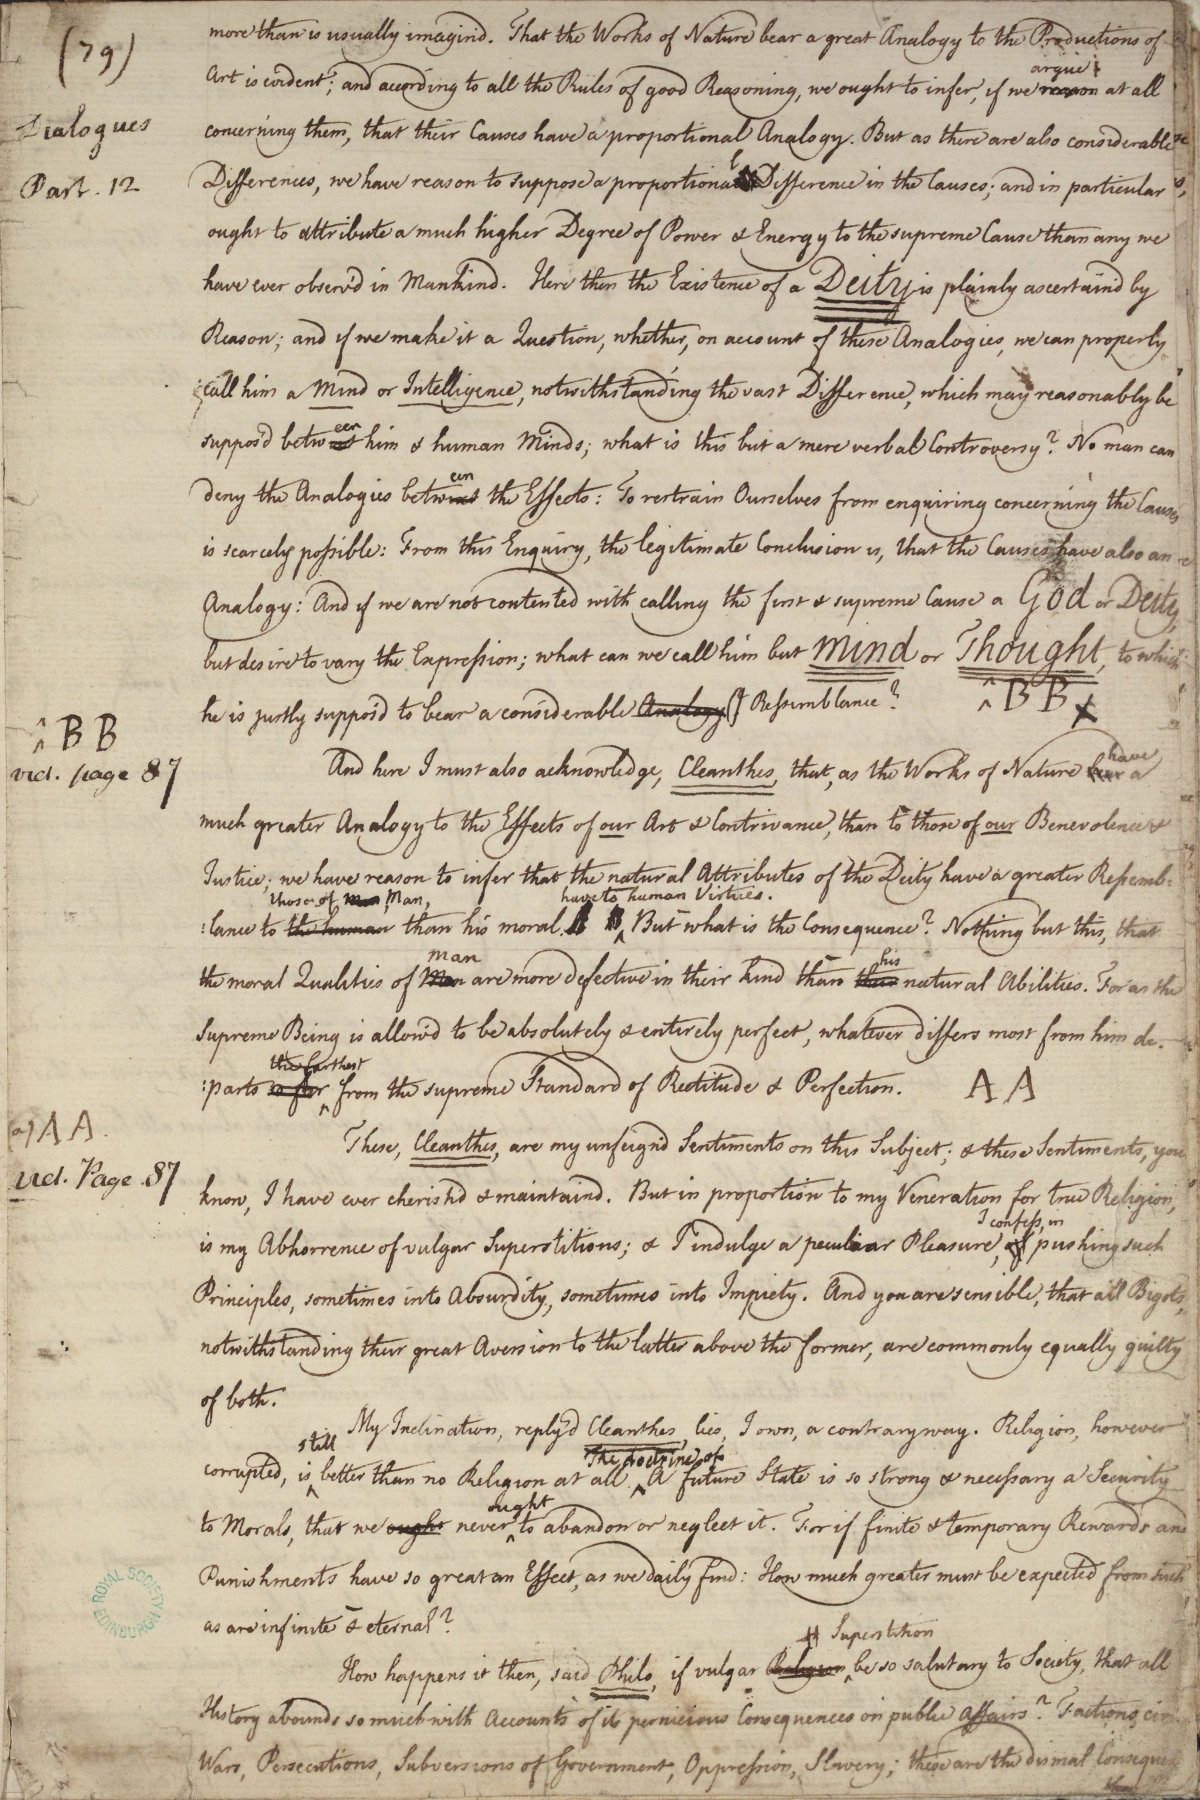 (79)
Dialogues
Part. 12
more than is usually imagind. That the Works of Nature bear a great Analogy to the Productions of
argue
Art is evident; and according to all the Rules of good Reasoning, we ought to infer, if we reason at all
concerning them, that their Causes have a proportional Analogy. But as there are also considerable
Differences, we have reason to suppose a proportional Difference in the Causes; and in particular
ought to attribute a much higher Degree of Power & Energy to the supreme Cause than any we
have ever observ'd in Mankind. Here then the Existence of a Deity is plainly ascertaind by
Reason; and if we make it a Question, whether, on account of these Analogies, we can properly
call him a Mind or Intelligence, notwithstanding the vast Difference, which may reasonably be
een
suppos'd betwixt him & human Minds; what is this but a mere verbal Controversy? No man can
een
deny the Analogies betwixt the Effects: To restrain Ourselves from enquiring concerning the Causes
is scarcely possible: From this Enquiry, the legitimate Conclusion is, that the Causes have also an
Analogy: And if we are not contented with calling the first & supreme Cause a God or Deity,
but desire to vary the Expression; what can we call him but Mind or Thought, to which
he is justly suppos'd to bear a considerable Analogy Ressemblance? ^ B B
^ B B
vid. page 87
have
And here I must also acknowledge, Cleanthes, that, as the Works of Nature bear a
much greater Analogy to the Effects of our Art & Contrivance, than to those of our Benevolence &
Justice; we have reason to infer that the natural Attributes of the Deity have a greater Ressemb-
those of Man Man, have to human Virtues.
:lance to the human than his moral ^ But what is the Consequence? Nothing but this, that
man his
the moral Qualities of Man are more defective in their kind than their natural Abilities. For as the
Supreme Being is allow'd to be absolutely & entirely perfect, whatever differs most from him de-
the farthest
:parts so far ^ from the supreme Standard of Rectitude & Perfection. A A
a) A A.
vid. Page 87
These, Cleanthes, are my unfeign'd Sentiments on this Subject; & these Sentiments, you
know, I have ever cherish'd & maintaind. But in proportion to my Veneration for true Religion,
I confess, in
is my Abhorrence of vulgar Superstitions; & I indulge a peculiar Pleasure, of pushing such
Principles, sometimes into Absurdity, sometimes into Impiety. And you are sensible, that all Bigots,
notwithstanding their great Aversion to the latter above the former, are commonly equally guilty
of both.
My Inclination, reply'd Cleanthes, lies, I own, a contrary way. Religion, however
still The Doctrine of
corrupted, is ^ better than no Religion at all. ^ A future State is so strong & necessary a Security
ought
to Morals, that we ought never ^ to abandon or neglect it. For if finite & temporary Rewards and
Punishments have so great an Effect, as we daily find: How much greater must be expected from such
as are infinite & eternal?
Superstition
How happens it then, said Philo, if vulgar Religion ^ be so salutary to Society, that all
History abounds so much with Accounts of its pernicious Consequences on public Affairs? Factions, civil
Wars, Persecutions, Subversions of Government, Oppression, Slavery; these are the dismal Consequen
ROYAL SOCIETY
EDINBURGH